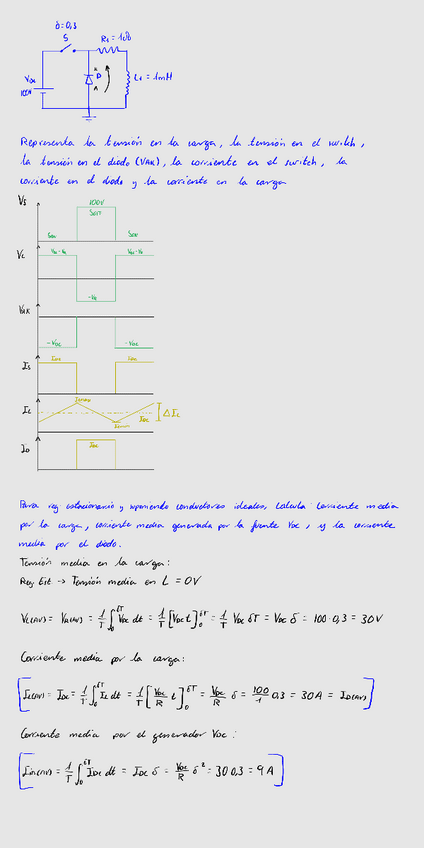 δ=0,3
S
R₁ = 1Ω
VDC
100V
K
D
A
L₁ = 1mH
Representa la tensión en la carga, la tensión en el switch,
la tensión en el diodo (VAK), la corriente en el switch, la
corriente en el diodo y la corriente en la carga
VS
100V
SOFF
SON
SON
VL
VDC - VR
VDC - VR
-VR
VAK
-VDC
-VDC
IS
IDC
IL
IDC
ΔIL
ID
IDC
Para reg estacionario y suponiendo conductores ideales, calcula: Corriente media
por la carga, corriente media generada por la fuente VDC, y la corriente
media por el diodo.
Tensión media en la carga:
Reg Est → Tensión media en L = 0V
VL(AV) = VR(AV) = 1/T ∫₀^δT VDC dt = 1/T [VDC t]₀^δT = 1/T VDC δT = VDC δ = 100·0,3 = 30V
Corriente media por la carga:
IL(AV) = IDC = 1/T ∫₀^δT IL dt = 1/T [VDC/R t]₀^δT = VDC/R δ = 100/1 0,3 = 30A = ID(AV)
Corriente media por el generador VDC:
Iin(AV) = 1/T ∫₀^δT IDC dt = IDC δ = VDC/R δ² = 30·0,3 = 9A